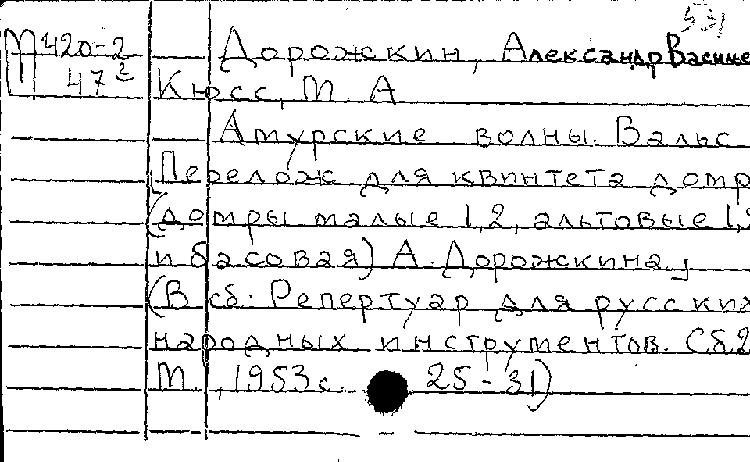 531
М 420-2 Дорожкин, Александр Василье
47² Кюсс, М. А
Амурские волны. Вальс
Перелож для квинтета домр
(домры малые 1,2, альтовые 1,2
и басовая) А. Дорожкина.
(В сб. Репертуар для русских
народных инструментов. Сб.2
М., 1953 с. 25-31)